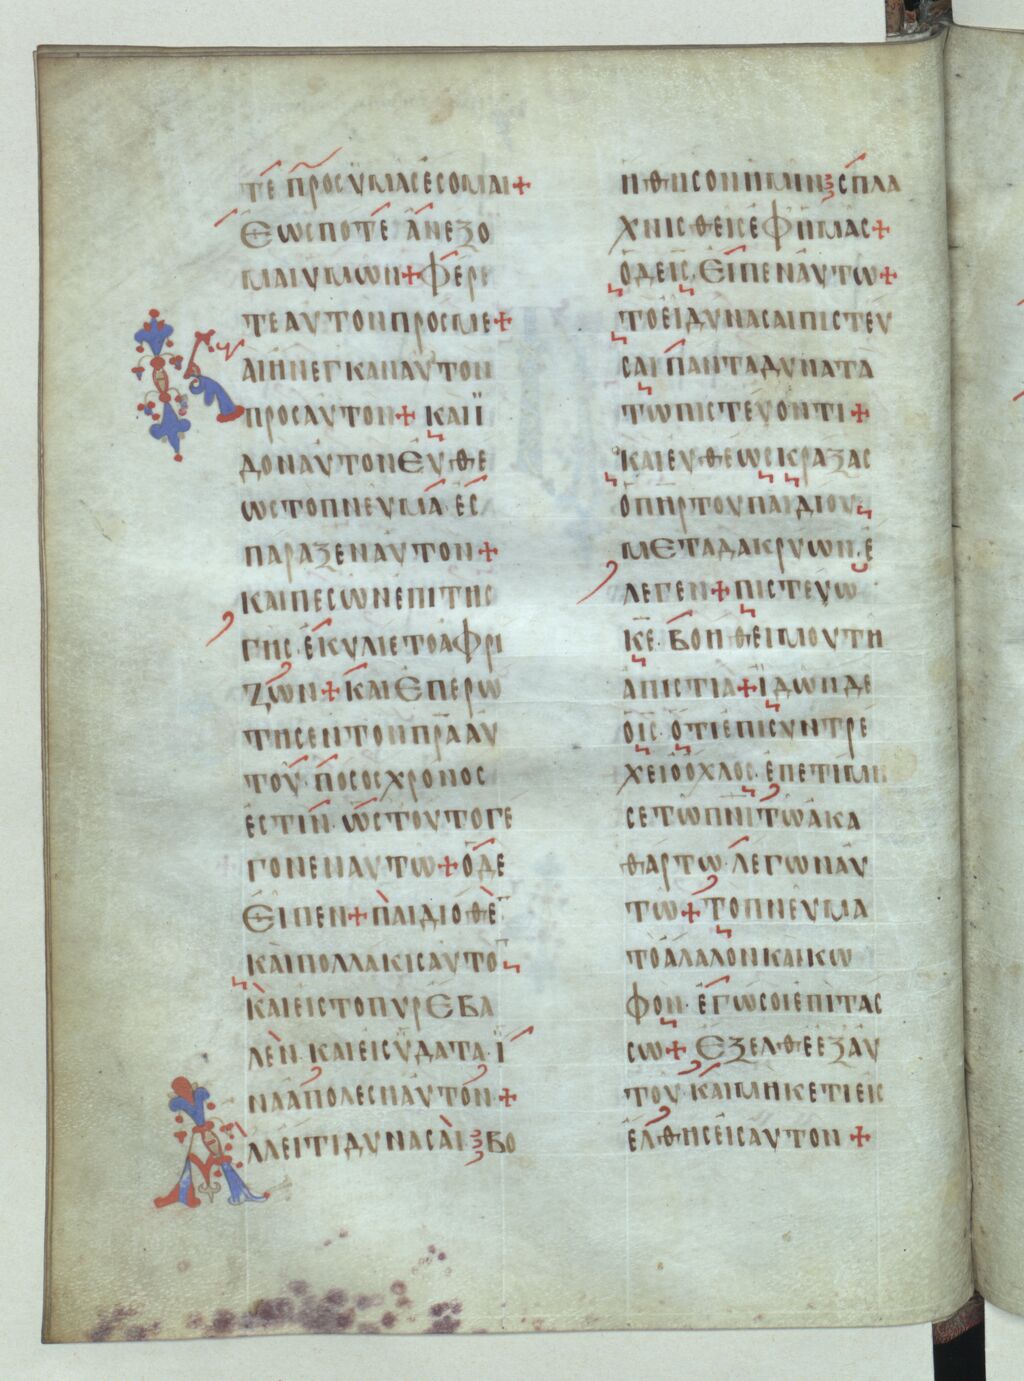 ΤΕ ΠΡΟΣΥΜΑΣΕΣΟΜΑΙ+
ΕΩΣΠΟΤΕ ΑΝΕΞΟ
ΜΑΙΥΜΩΝ+ΦΕΡΕ
ΤΕΑΥΤΟΝΠΡΟΣΜΕ+
ΚΑΙΗΝΕΓΚΑΝΑΥΤΟΝ
ΠΡΟΣΑΥΤΟΝ+ ΚΑΙΪ
ΔΟΝΑΥΤΟΝΕΥΘΕ
ΩΣΤΟΠΝΕΥΜΑ·ΕΣ
ΠΑΡΑΞΕΝΑΥΤΟΝ+
ΚΑΙΠΕΣΩΝΕΠΙΤΗΣ
ΓΗΣ·ΕΚΥΛΙΕΤΟΑΦΡΙ
ΖΩΝ+ΚΑΙΕΠΕΡΩ
ΤΗΣΕΝΤΟΝΠΡΑΑΥ
ΤΟΥ·ΠΟΣΟΣΧΡΟΝΟΣ
ΕΣΤΙΝ·ΩΣΤΟΥΤΟΓΕ
ΓΟΝΕΝΑΥΤΩ+ΟΔΕ
ΕΙΠΕΝ+ΠΑΙΔΙΟΘΕ
ΚΑΙΠΟΛΛΑΚΙΣΑΥΤΟ
ΚΑΙΕΙΣΤΟΠΥΡΕΒΑ
ΛΕΝ·ΚΑΙΕΙΣΫΔΑΤΑ·Ϊ
ΝΑΑΠΟΛΕΣΗΑΥΤΟΝ+
ΑΛΛΕΙΤΙΔΥΝΑΣΑΙ·ΒΟ
ΗΘΗΣΟΝΗΜΙΝ·ΣΠΛΑ
ΧΝΙΣΘΕΙΣΕΦΗΜΑΣ+
ΟΔΕΙΣ·ΕΙΠΕΝΑΥΤΩ+
ΤΟΕΙΔΥΝΑΣΑΙΠΙΣΤΕΥ
ΣΑΙΠΑΝΤΑΔΥΝΑΤΑ
ΤΩΠΙΣΤΕΥΟΝΤΙ+
ΚΑΙΕΥΘΕΩΣΚΡΑΞΑΣ
ΟΠΗΡΤΟΥΠΑΙΔΙΟΥ
ΜΕΤΑΔΑΚΡΥΩΝ·Ε
ΛΕΓΕΝ+ΠΙΣΤΕΥΩ
ΚΕ·ΒΟΗΘΕΙΜΟΥΤΗ
ΑΠΙΣΤΙΑ+ΪΔΩΝΔΕ
ΟΙΣ·ΟΤΙΕΠΙΣΥΝΤΡΕ
ΧΕΙΟΟΧΛΟΣ·ΕΠΕΤΙΜΗ
ΣΕΤΩΠΝΙΤΩΑΚΑ
ΘΑΡΤΩ·ΛΕΓΩΝΑΥ
ΤΩ+ΤΟΠΝΕΥΜΑ
ΤΟΑΛΑΛΟΝΚΑΙΚΩ
ΦΟΝ·ΕΓΩΣΟΙΕΠΙΤΑΣ
ΣΩ+ ΕΞΕΛΘΕΕΞΑΥ
ΤΟΥ·ΚΑΙΜΗΚΕΤΙΕΙΣ
ΕΛΘΗΣΕΙΣΑΥΤΟΝ+